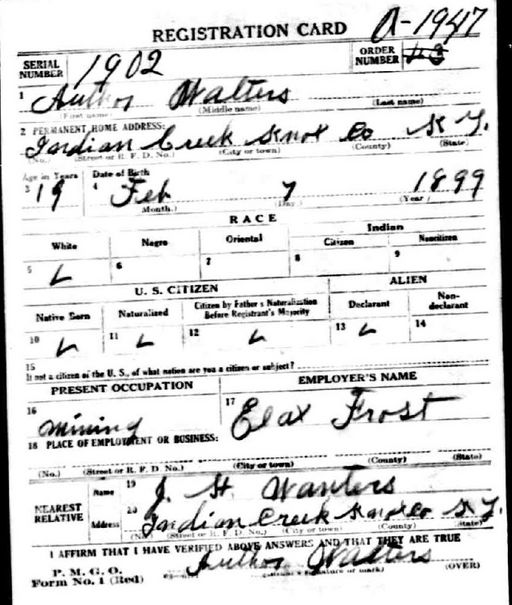 REGISTRATION CARD A-1947
SERIAL NUMBER 1902 ORDER NUMBER
1 Author Walters
(First name) (Middle name) (Last name)
2 PERMANENT HOME ADDRESS:
Indian Creek Knox Co K Y.
(No.) (Street or R. F. D. No.) (City or town) (County) (State)
Age in Years Date of Birth
3 19 4 Feb 7 1899
(Month.) (Day.) (Year)
RACE
White Negro Oriental Indian
Citizen Noncitizen
5 L 6 7 8 9
U. S. CITIZEN ALIEN
Native Born Naturalized Citizen by Father's Naturalization Before Registrant's Majority Declarant Non-declarant
10 L 11 L 12 L 13 L 14
15
If not a citizen of the U. S., of what nation are you a citizen or subject?
PRESENT OCCUPATION EMPLOYER'S NAME
16 Mining 17 Elax Frost
18 PLACE OF EMPLOYMENT OR BUSINESS:
(No.) (Street or R. F. D. No.) (City or town) (County) (State)
NEAREST RELATIVE
Name 19 J. H. Wanters
Address 20 Indian Creek Knox Co K Y.
(No.) (Street or R. F. D. No.) (City or town) (County) (State)
I AFFIRM THAT I HAVE VERIFIED ABOVE ANSWERS AND THAT THEY ARE TRUE
P. M. G. O.
Form No. 1 (Red) Author Walters (OVER)